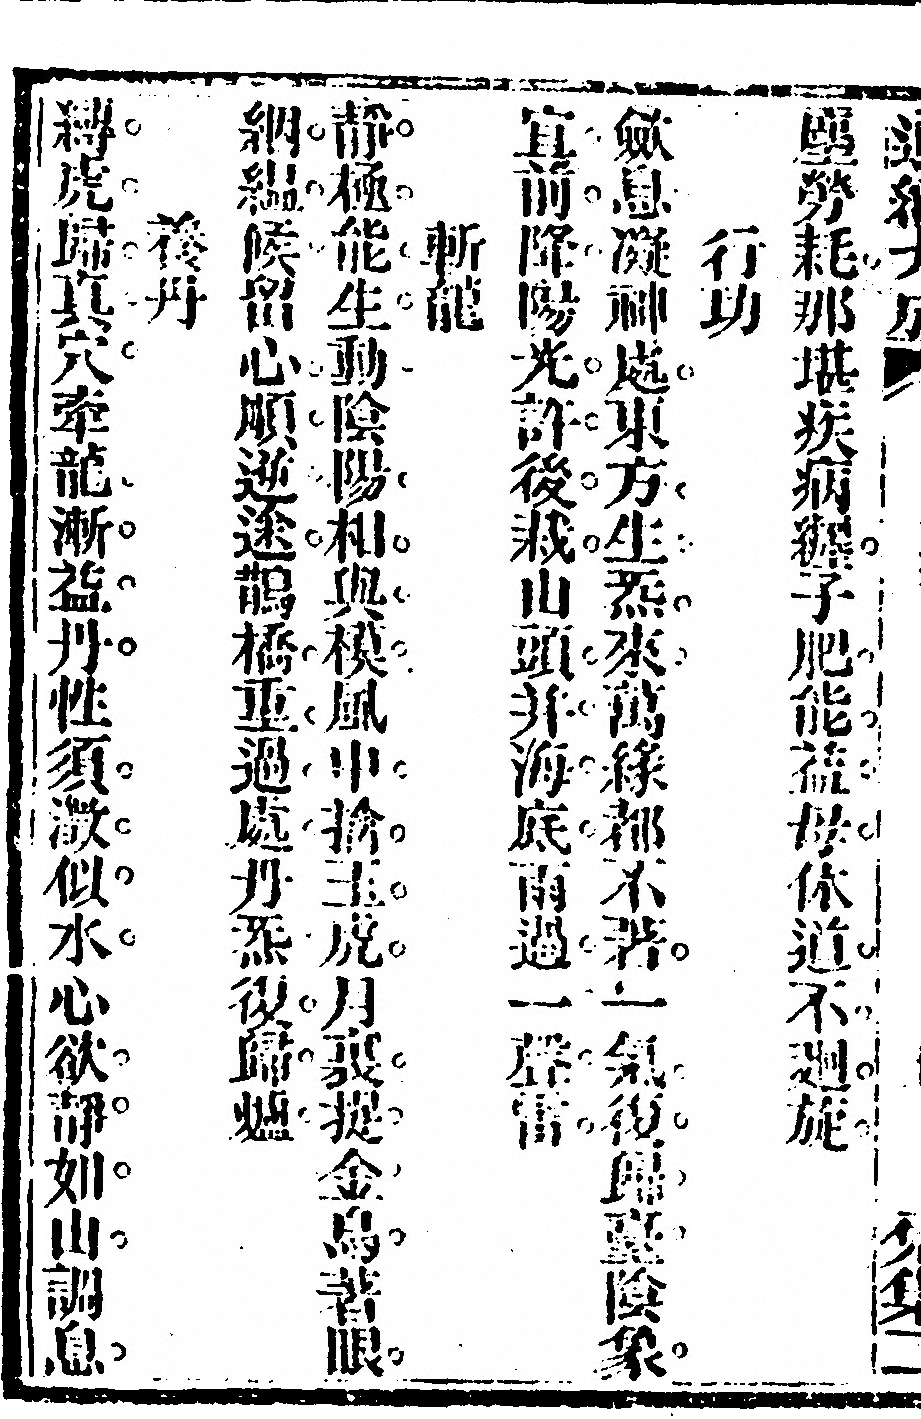 塵勞耗那堪疾病纏子肥能益母休道不廻旋
行功
斂息凝神處東方生炁來萬緣都不著一氣復歸臺陰象
宜前降陽光許後栽山頭并海底雨過一聲雷
斬龍
靜極能生動陰陽相與模風中擒玉虎月裏捉金烏著眼
絪緼候留心順逆途鵲橋重過處丹炁復歸爐
養丹
縛虎歸真穴牽龍漸益丹性須澂似水心欲靜如山調息